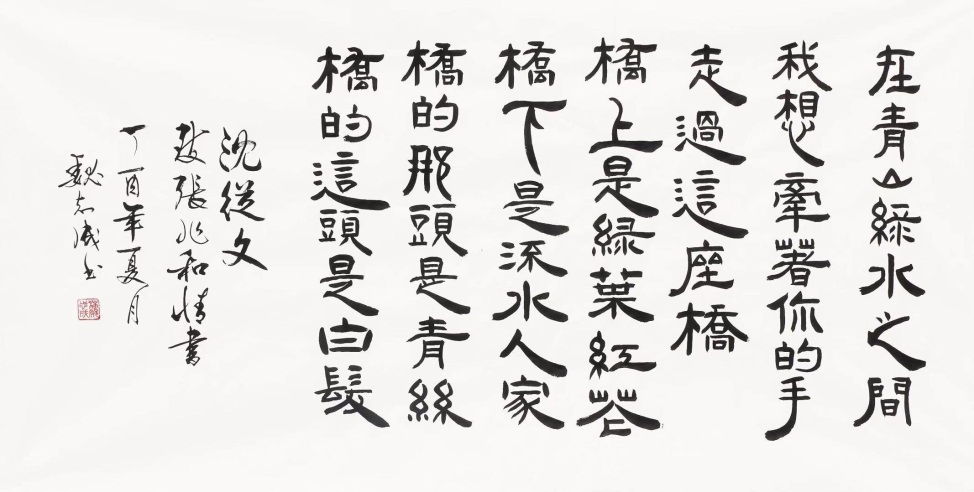 在青山綠水之間
我想牽著你的手
走過這座橋
橋上是綠葉紅花
橋下是流水人家
橋的那頭是青絲
橋的這頭是白髮
沈從文
致張兆和情書
丁酉年夏月
魏志成书